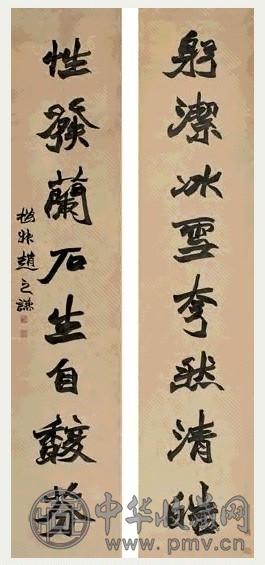 躬潔冰雪夸然清
性發蘭石生自馥
撝叔趙之謙
中华收藏网
www.pmv.cn